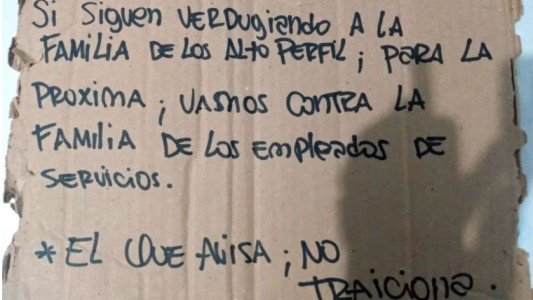 Si SiGUEN VERDUGiENDO A lA
FAMiliA DE Los Alto PERFIL ; PARA LA
PROXiMA ; VAMOS CONTRA LA
FAMiliA DE Los EMPlEADOS DE
SERViCiOS.
* EL QUE AViSA ; NO
TRAiCiONA.